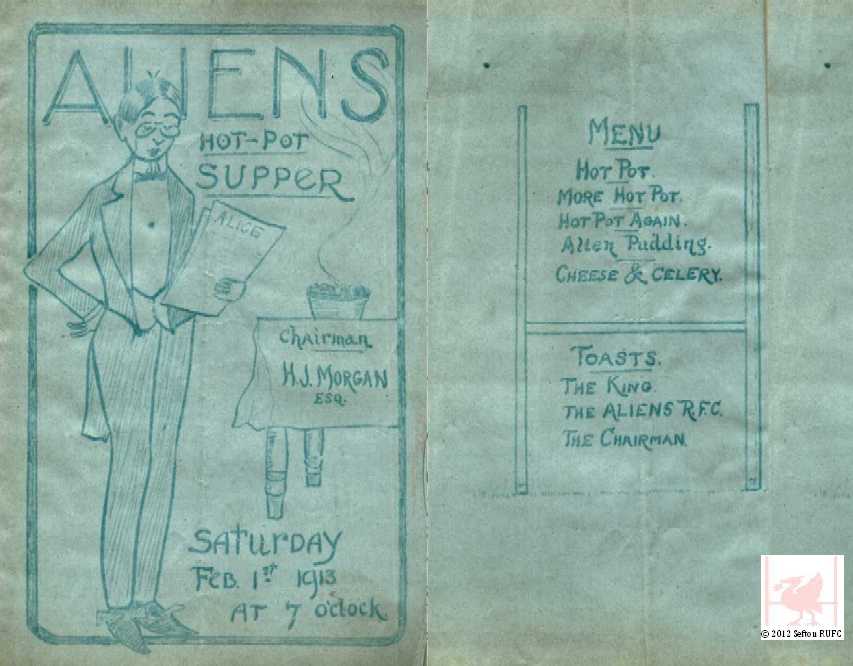 ALIENS
HOT-POT
SUPPER
ALICE
Chairman
H.J. MORGAN
ESQ.
SATURDAY
FEB. 1st 1913
AT 7 o'clock
MENU
HOT POT.
MORE HOT POT.
HOT POT AGAIN.
Alien Pudding.
CHEESE & CELERY.
TOASTS.
THE KING.
THE ALIENS R.F.C.
THE CHAIRMAN.
© 2012 Sefton RUFC